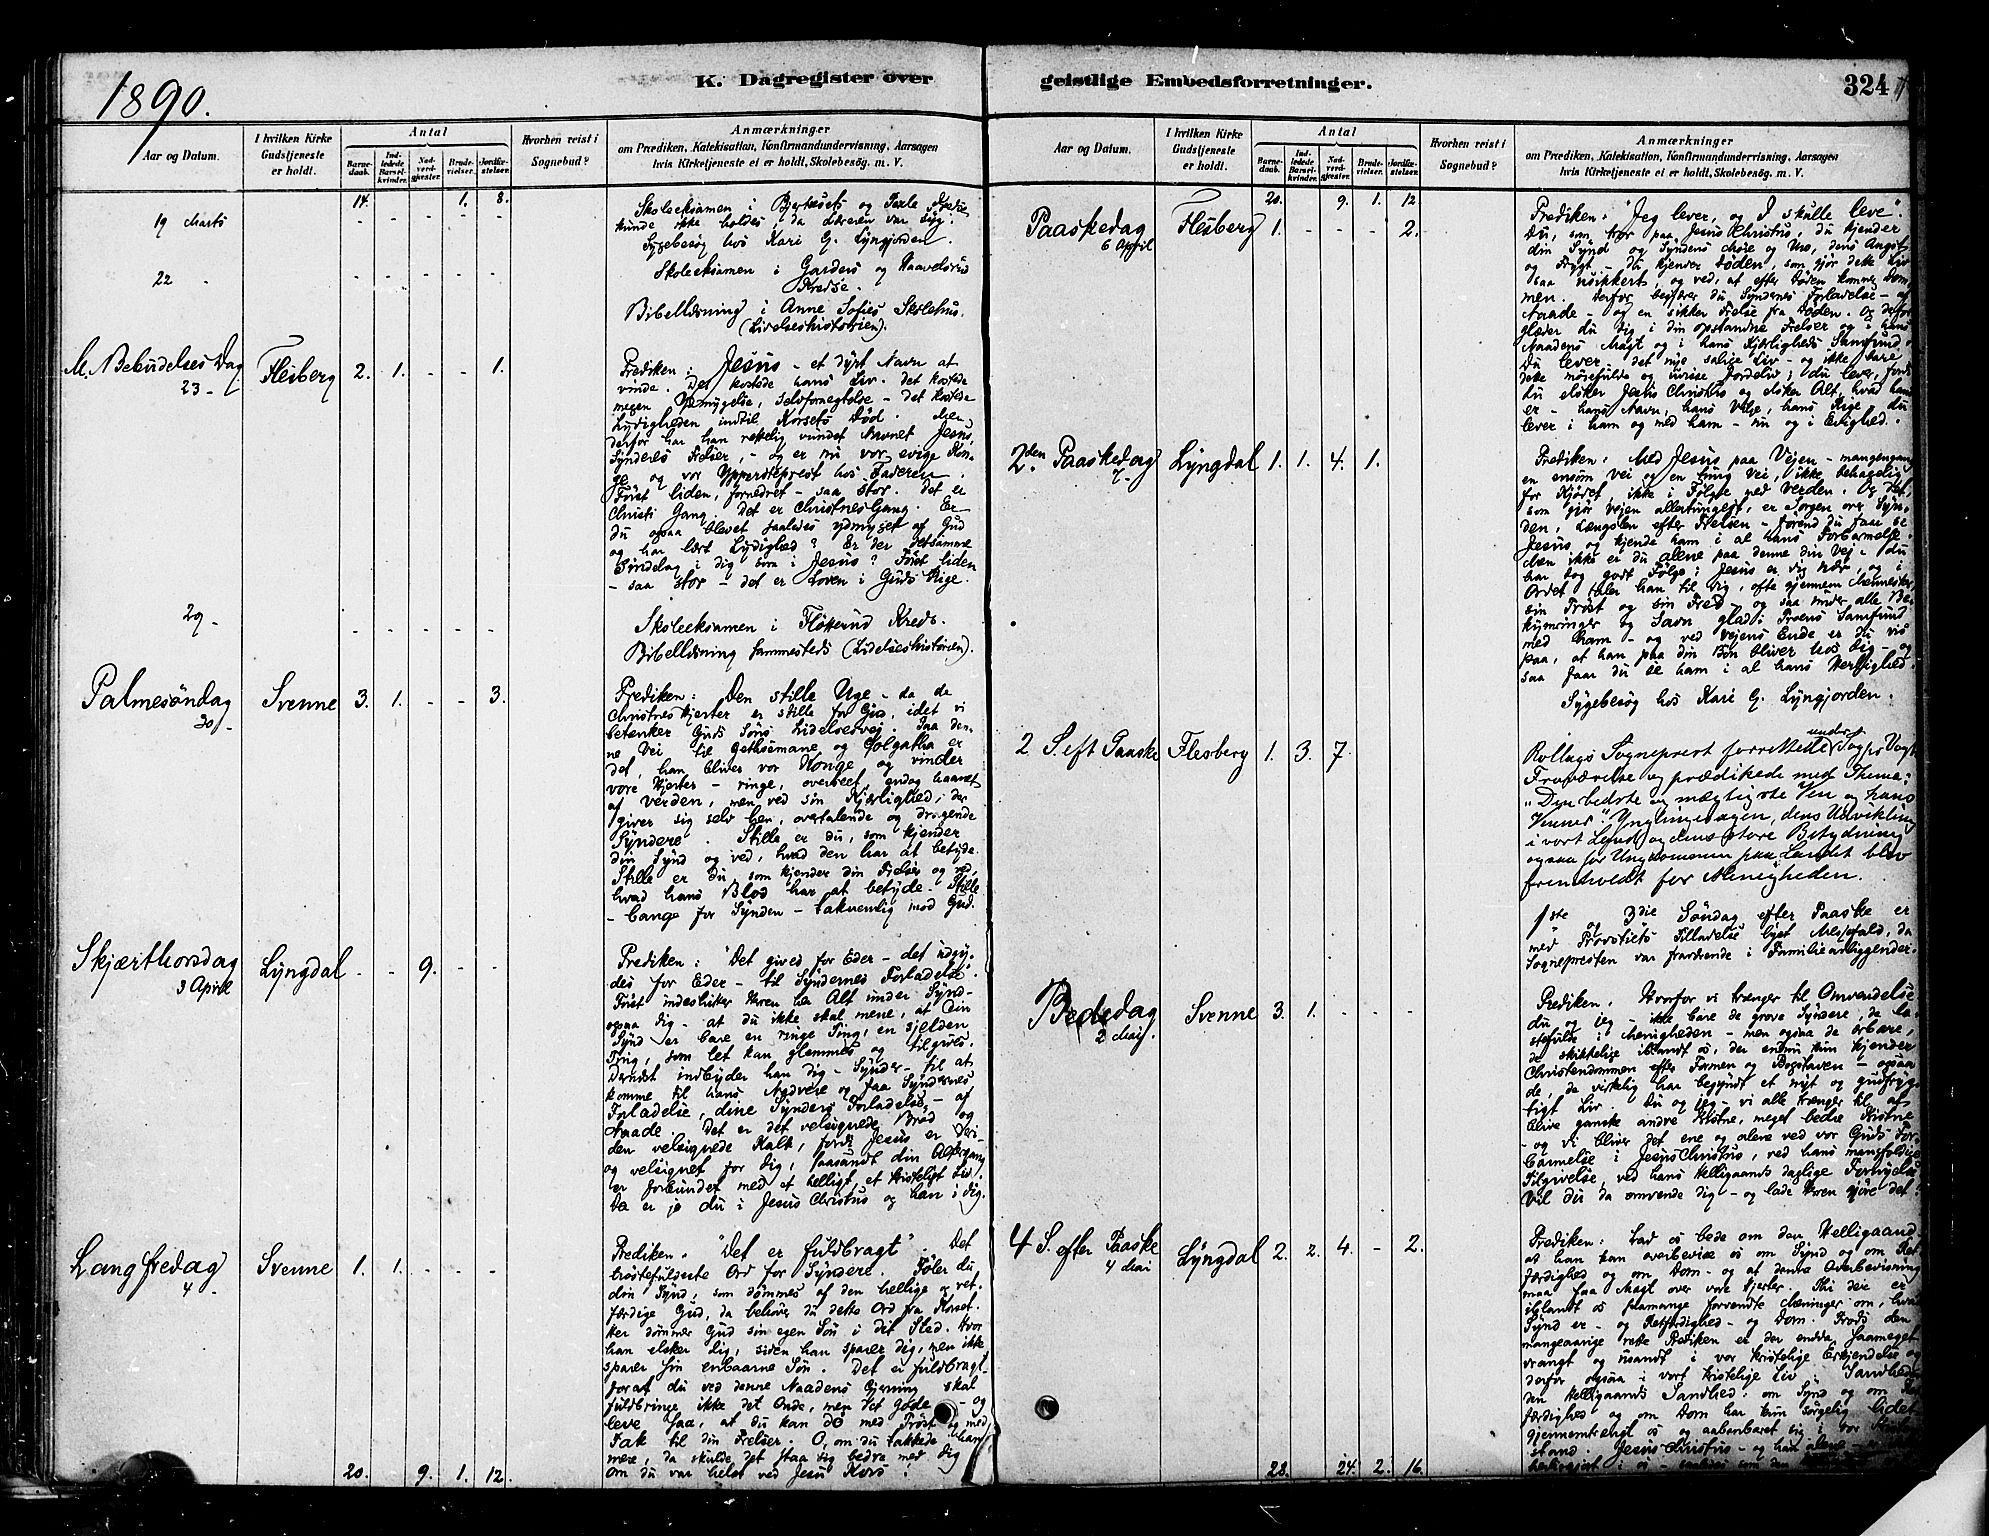 1890.
K. Dagregister over
Aar og Datum.
I hvilken Kirke Gudstjeneste er holdt.
Antal
Barnedaab.
Indledede Barselkvinder.
Nadverdgjester.
Brudevielser.
Jordfæstelser.
Hvorhen reist i Sognebud?
Anmærkninger
om Prædiken, Katekisation, Konfirmandundervisning, Aarsagen
hvis Kirketjeneste ei er holdt, Skolebesög. m. V.
14. 1. 8.
19 Marts - - - - -
Skoleeksamen i og
kunde ikke holdes, da læreren var syg.
Sygebesøg hos Kari G. Lyngjorden.
22 - - - - - -
Skoleeksamen i og
Kredse.
Bibellæsning i Anne Sofies Skolehus.
(Lidelseshistorien).
M. Bebudelses Dag 23 - Flesberg 2. 1. - - 1.
Prediken: Jesus - et dyrt Navn at
vinde. Det kostede hans Liv. det kostede
megen Ydmygelse, Selvfornegtelse - det kostede
Lydigheden indtil Korsets Død. Men
derfor har han rettelig vundet Navnet Jesus,
Synderes Frelser, - og er nu vor evige Kon-
ge og vor Ypperstepræst hos Faderen.
Først liden, fornedret - saa stor. Det er
Christi Gang. Det er Christnes Gang. Er
du ogsaa blevet saaledes ydmyget af Gud
og har lært Lydighed? Er der detsamme
Sindelag i dig som i Jesus? Først liden
- saa stor - det er Loven i Guds Rige.
29 - - - - - -
Skoleeksamen i Kreds.
Bibellæsning sammesteds (Lidelseshistorien).
Palmesøndag 30 - Svenne 3. 1. - - 3.
Prediken: Den stille Uge - da de
Christnes hjerter er stille for Gud, idet vi
betenker Guds Søns Lidelsesvej. Paa den-
ne Vei til Gethsemane og Golgatha er
det, han bliver vor Konge og vinder
vore Hjerter - ringe, overseet, endog haanet
af Verden, men ved sin Kjærlighed, der
giver sig selv hen, overtalende og dragende
Syndere. Stille er du, som kjender
din Synd og ved, hvad den har at betyde.
Stille er du, som kjender din Frelser og ved,
hvad hans Blod har at betyde. Stille
- bange for Synden - taknemlig mod Gud.
Skjærthorsdag 3 April Lyngdal - - 9. - -
Prediken: "Det gives for Eder - det udgy-
des for Eder - til Syndernes Forladelse".
Først indeslutter Herren her Alt under Synd -
ogsaa dig - at du ikke skal mene, at din
Synd er bare en ringe Ting, en sjelden
Ting, som let kan glemmes og tilgives.
Dernæst indbyder han dig - Synder - til at
komme til hans Nadvere og faa Syndernes
Forladelse, dine Synders Forladelse, - af
Naade. Det er det velsignede Brød og
den velsignede Kalk, fordi Jesus er
og velsignet for dig, saasandt din Altergang
er forbundet med et helligt, et kristeligt Liv.
Da er jo du i Jesus Christus og han i dig.
Langfredag 4 - Svenne 1. 1. - - -
Prediken. "Det er fuldbragt". Det
trøstefuldeste Ord for Syndere. Føler du
din Synd, som dømmes af den hellige og ret-
færdige Gud, da behøver du dette Ord fra Korset.
Her dømmer Gud sin egen Søn i dit Sted. Hvor
han elsker dig, siden han sparer dig, men ikke
sparer sin enbaarne Søn. Det er fuldbragt,
forat du ved denne Naadens Gjerning skal
fuldbringe ikke det Onde, men det Gode - og
leve saa, at du kan dø med Trøst og med
Tak til din Frelser. O, om du takkede ham
mere, da skulde det staa sig bedre med dig
om du var helst ved Jesu Kors!
20. 9. 1. 12.
geistlige Embedsforretninger.
324
Aar og Datum.
I hvilken Kirke Gudstjeneste er holdt.
Antal
Barnedaab.
Indledede Barselkvinder.
Nadverdgjester.
Brudevielser.
Jordfæstelser.
Hvorhen reist i Sognebud?
Anmærkninger
om Prædiken, Katekisation, Konfirmandundervisning, Aarsagen
hvis Kirketjeneste ei er holdt, Skolebesög. m. V.
20. 9. 1. 12
Paaskedag 6 April Flesberg 1. - - - 2.
Prediken: "Jeg lever, og I skulle leve".
Du, som tror paa Jesus Christus, du kjender
din Synd og Syndens Møie og Uro, dens Angst
og Frygt - du kjender Døden, som gjør dette Liv
saa usikkert, og ved, at efter Døden kommer Dom-
men. Derfor begjærer du Syndernes Forladelse - af
Naade - og en sikker Frelse fra Døden. Og derfor
glæder du dig i din opstandne Frelser og i hans
Naadens Magt og i hans Kjærligheds Samfund.
Du lever det nye salige Liv - og ikke bare
dette møiefulde og urene Jordeliv; du lever, fordi
du elsker Jesus Christus og elsker Alt, hvad hans
er - hans Navn, hans Vilje, hans Rige, du
lever i ham og med ham - nu og i Evighed.
2den Paaskedag 7 - Lyngdal 1. 1. 4. 1.
Prediken: Med Jesus paa Vejen - mangengang
en ensom Vei og en tung Vei, ikke behagelig
for Kjødet, ikke i Følge med Verden. Og det,
som gjør Vejen allertungest, er Sorgen over Syn-
den, Længslen efter Frelsen - førend du faar se
Jesus og kjende ham i al hans Forbarmelse.
Men ikke er du alene paa denne din Vej - du
har dog godt Følge: Jesus er dig nær, og i
Ordet taler han til dig, ofte gjennem Mennesker,
sin Trøst og sin Fred - og saa under alle Be-
kymringer og Savn glad i Troens Samfund
med ham - og ved Vejens Ende er du vis
paa, at han paa din Bøn bliver hos dig - og
saa faar du se ham i al hans Herlighed.
Sygebesøg hos Kari G. Lyngjorden.
2 S. eft Paaske Flesberg 1. 3. 7.
Rollags Sogneprest forrettede under Sogpr Vogts
Fraværelse og prædikede med Thema:
"Den bedste og mægtigste Ven og hans
Venner". Ynglingesagen, dens Udvikling
i vort Land og dens store Betydning
ogsaa for Ungdommen paa Landet blev
fremholdt for Menigheden.
1ste og 3die Søndag efter Paaske er
med Provstiets Tilladelse lyst Messefald, da
Sognepresten var fraværende i Familieanliggender.
Bededag 2 Mai. Svenne 3. 1. - - -
Prediken. Hvorfor vi trænger til Omvendelse
du og jeg - ikke bare de grove Syndere, de la-
stefulde i Menigheden - men ogsaa de ærbare,
de skikkelige iblandt os, der endnu kun kjender
Christendommen efter Formen og Bogstaven - ogsaa
de, da virkelig har begyndt et nyt og gudfryg-
tigt Liv. Du og jeg - vi alle trænger til at
blive ganske andre Kristne, meget bedre Kristne
- og vi bliver det ene og alene ved vor Guds For-
barmelse i Jesus Christus, ved hans mangfoldige
Tilgivelse, ved hans Helligaands daglige Fornyelse
Vil du da omvende dig - og lade Herren gjøre det?
4 S. efter Paaske 4 Mai Lyngdal 2. 2. 4. - 2.
Prediken: Lad os bede om den Helligaand,
at han kan overbevise os om Synd og om Ret-
færdighed og om Dom - og at denne Overbevisning
maa faa Magt over vore Hjerter. Thi der er
iblandt os saamange forvendte Meninger om, hvad
Synd er - og Retfærdighed - og Dom. Trods den
mangeaarige rette Prediken er der endda saameget
vrangt og usandt i vor kristelige Erkjendelse og
derfor ogsaa i vort kristelige Liv. Sandheden
den Helligaands Sandhed: om Synd og om Ret-
færdighed og om Dom har kun sørgelig lidet
gjennemtrængt os og aabenbaret sig i vor
stand. Jesus Christus - og han alene -
28. 24. 2. 16.